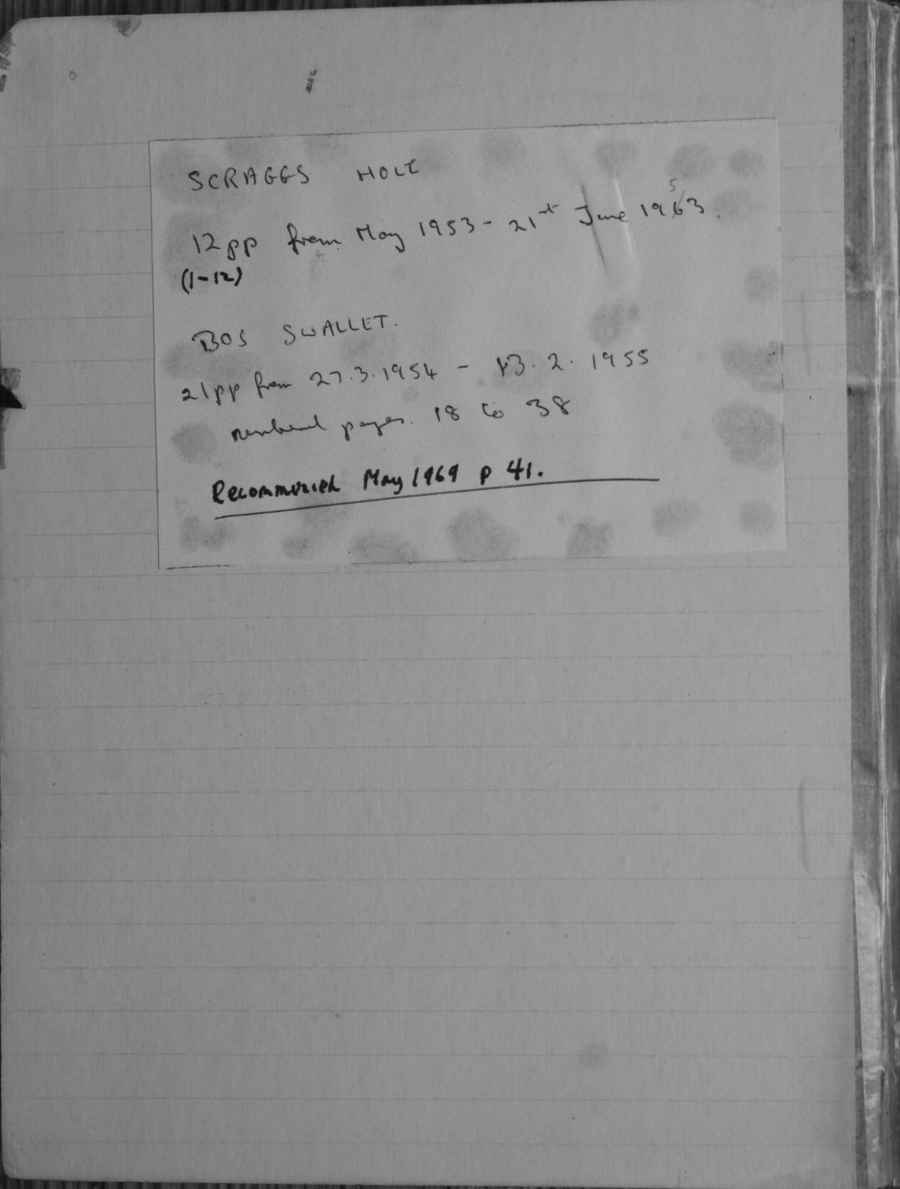 SCRAGGS HOLE
12pp from May 1953 - 21st June 1953.
(1-12)
BOS SWALLET.
21pp from 27.3.1954 - 13.2.1955
numbered pages. 18 to 38
Recommenced May 1969 p 41.